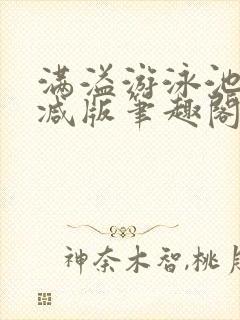 满溢游泳池
减版笔趣阁
神奈木智,桃月